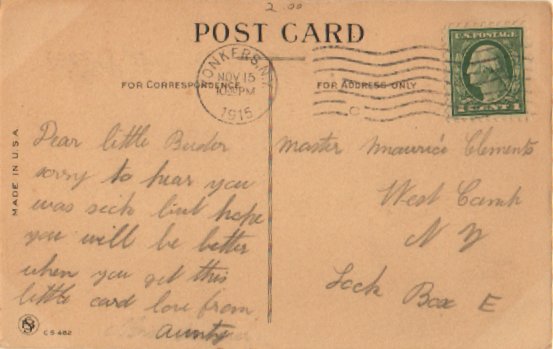 2.00
POST CARD
YONKERS, N.Y.
NOV 15
1915
U.S. POSTAGE
1 CENT 1
FOR CORRESPONDENCE
FOR ADDRESS ONLY
MADE IN U.S.A.
Dear little
sorry to hear you
was sick but hope
you will be better
when you get this
little card love from
aunty
Master Maurice Clements
West Camp
N Y
Lock Box E
C S 482